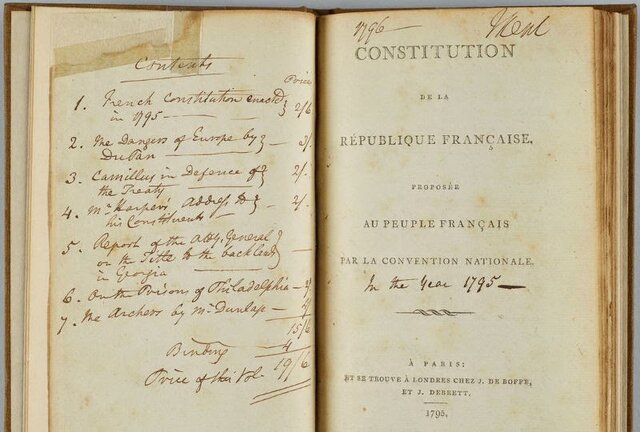 Contents
Price
1. French Constitution enacted } 2/6
in 1795
2. The Dangers of Europe by } 3/.
DuPan
3. Camillus in Defence of } 2/.
the Treaty
4. Mr. Harper's Address to } 2/.
his Constituents
5. Report of the Atty. General
on the Title to the back land }
in Georgia
6. On the Prisons of Philadelphia
7. The Archers by Mr. Dunlap
15/6
Binding 4
Price of this Vol. 19/6
1796
CONSTITUTION
DE LA
RÉPUBLIQUE FRANÇAISE,
PROPOSÉE
AU PEUPLE FRANÇAIS
PAR LA CONVENTION NATIONALE.
In the Year 1795
À PARIS:
ET SE TROUVE À LONDRES CHEZ J. DE BOFFE,
ET J. DEBRETT.
1795.